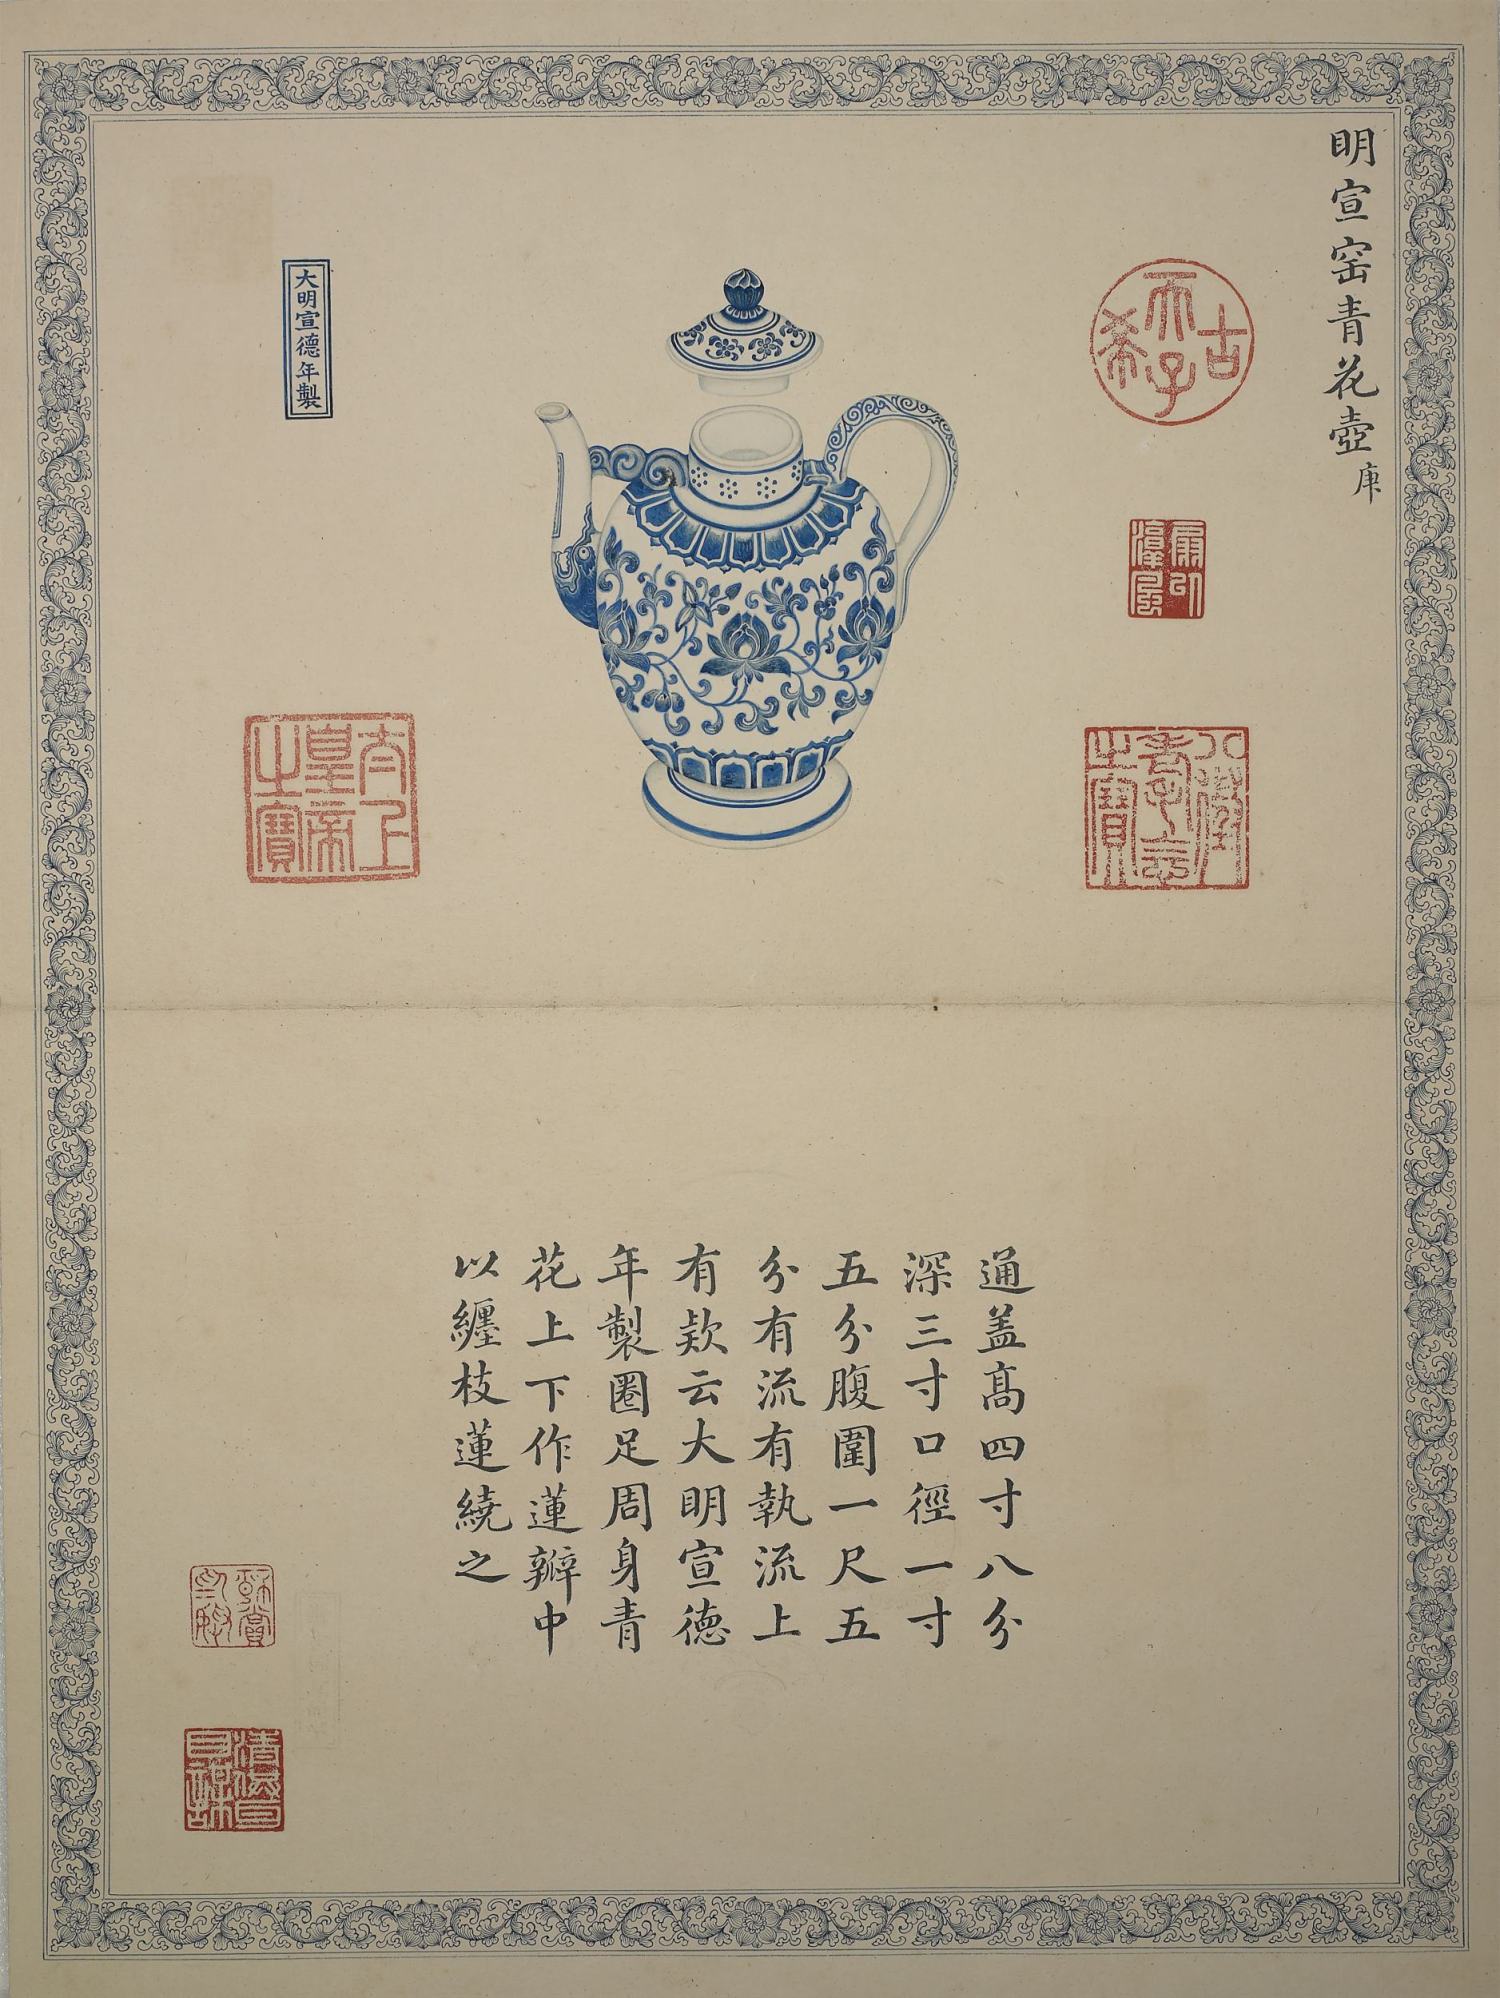 明宣窑青花壺 庚
古希天子
八徵耄念之寶
大明宣德年製
太上皇帝之寶
通盖髙四寸八分
深三寸口徑一寸
五分腹圍一尺五
分有流有執流上
有款云大明宣德
年製圈足周身青
花上下作蓮瓣中
以纏枝蓮繞之